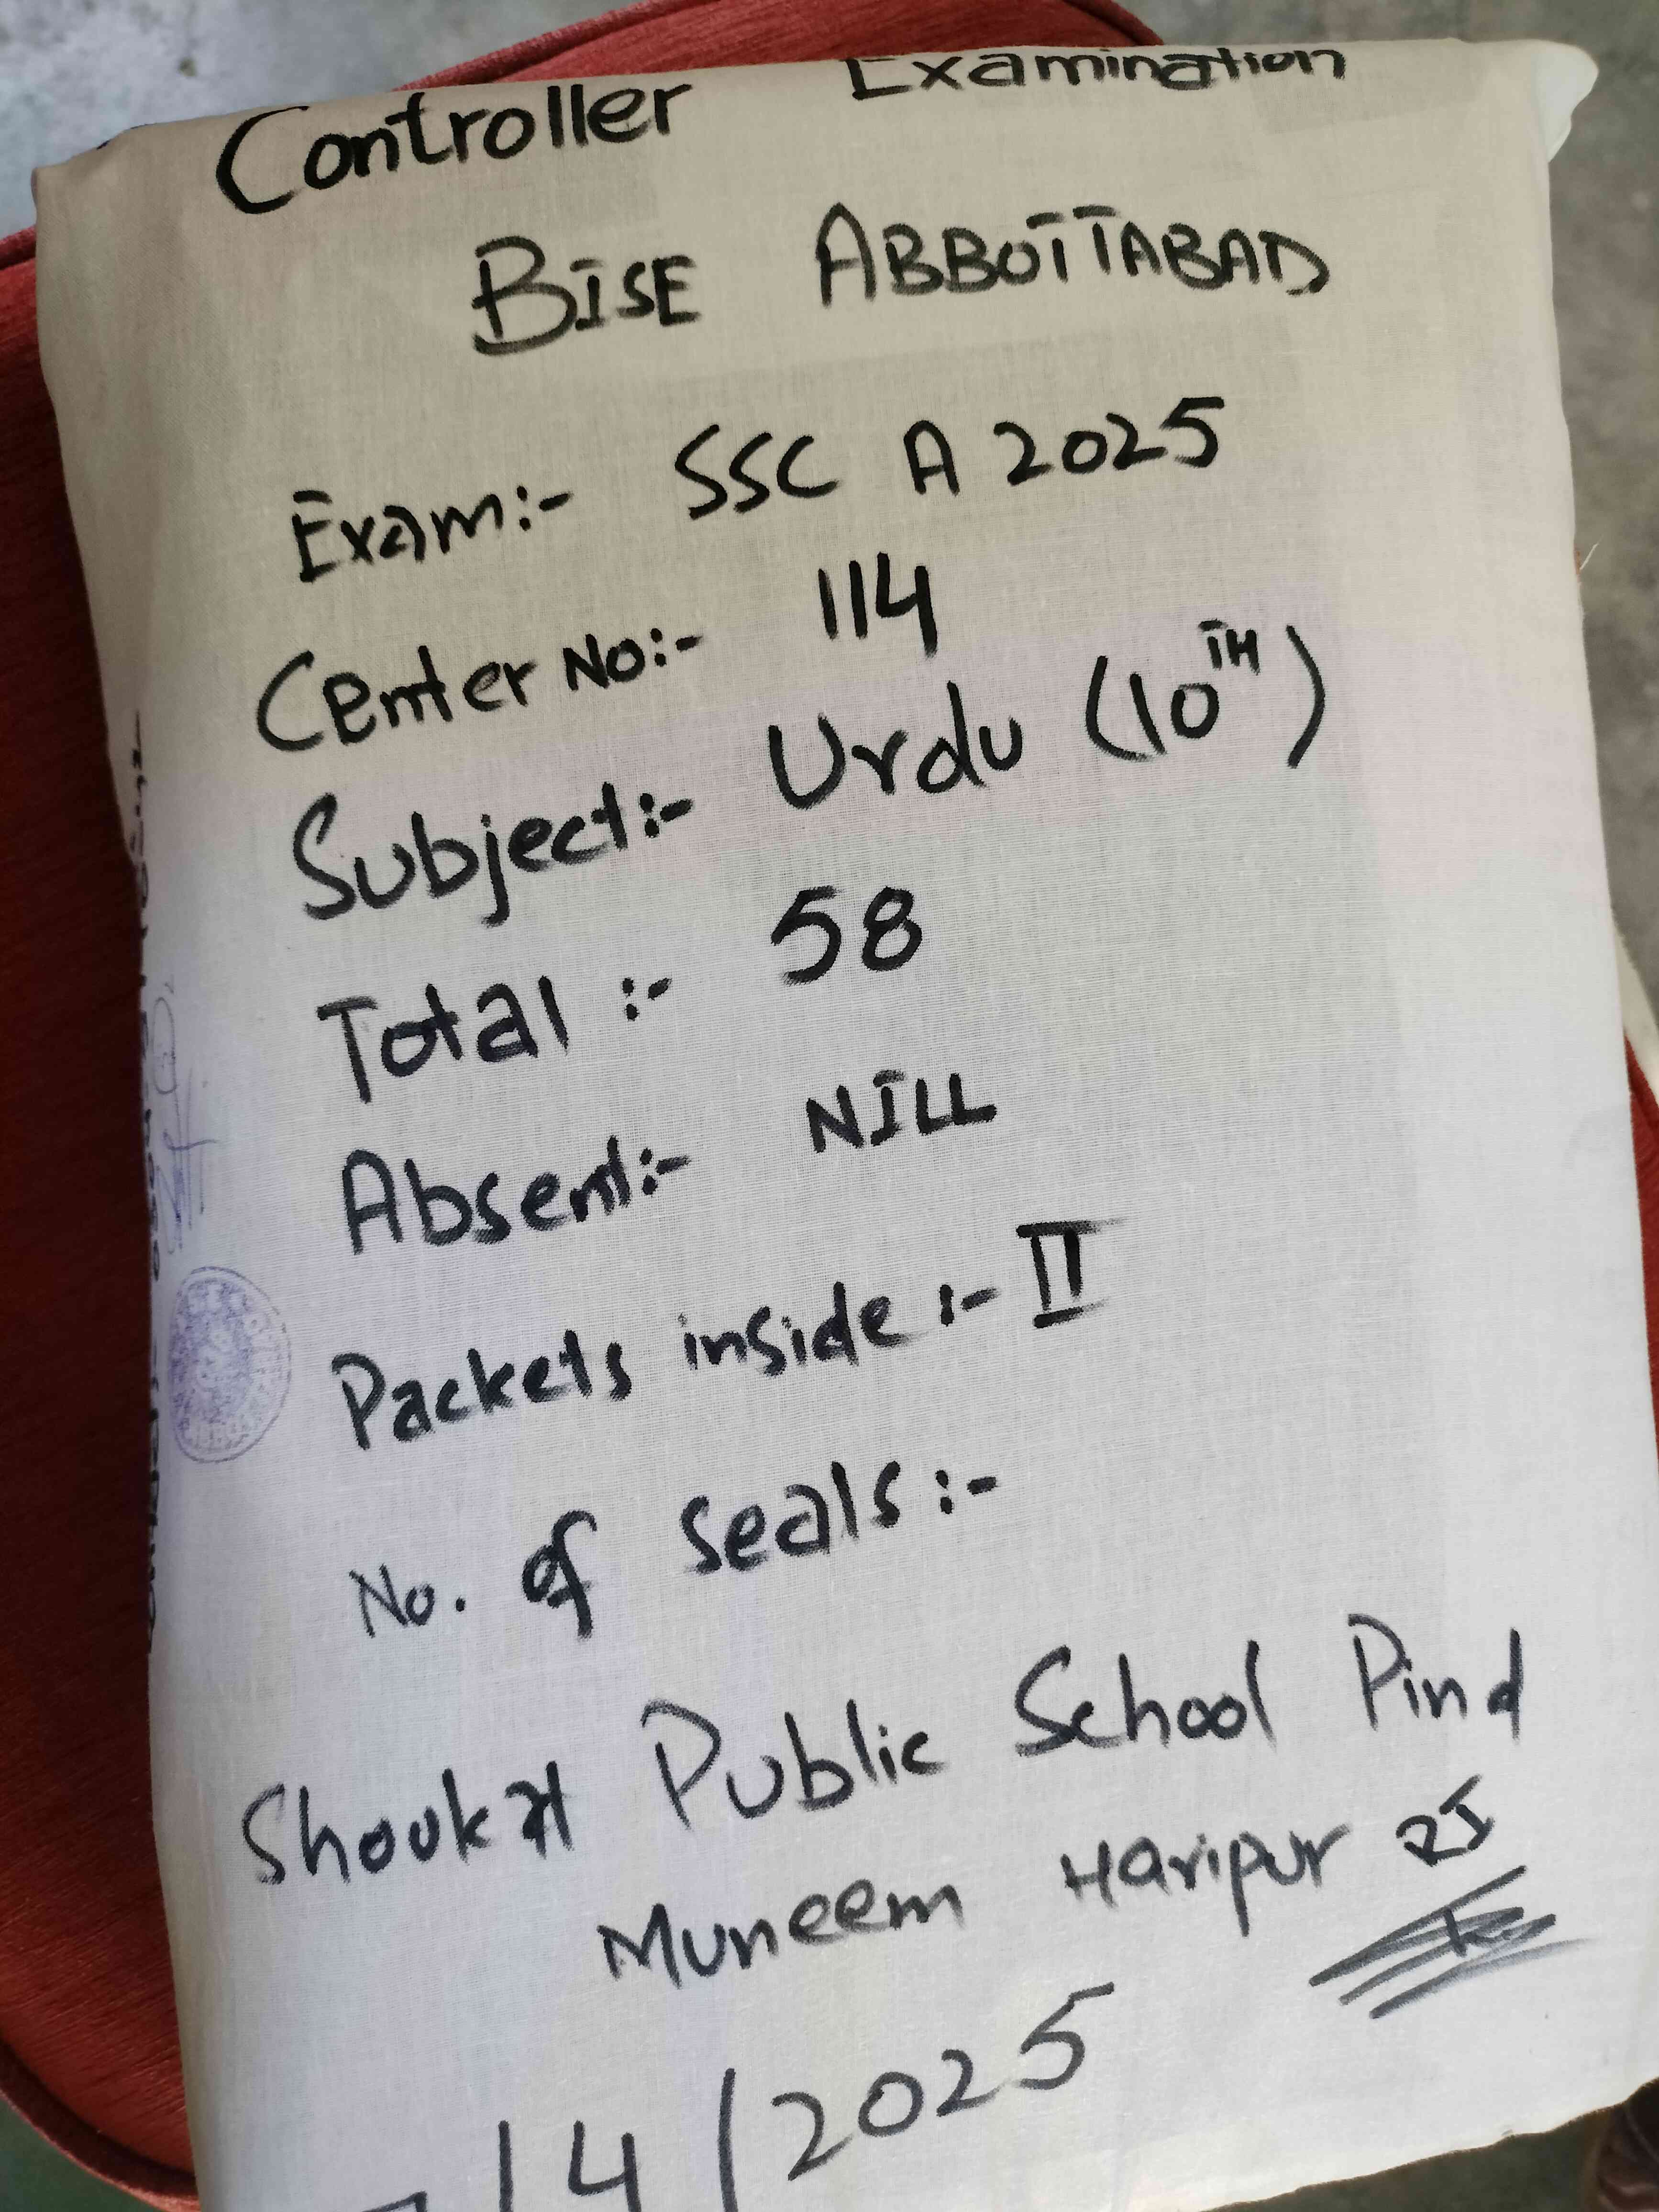 Controller Examination
BISE ABBOTTABAD
Exam:- SSC A 2025
Center No:- 114
Subject:- Urdu (10TH)
Total :- 58
Absent:- NILL
Packets inside :- II
No. of seals:-
Shoukat Public School Pind
Muneem Haripur
/4/2025